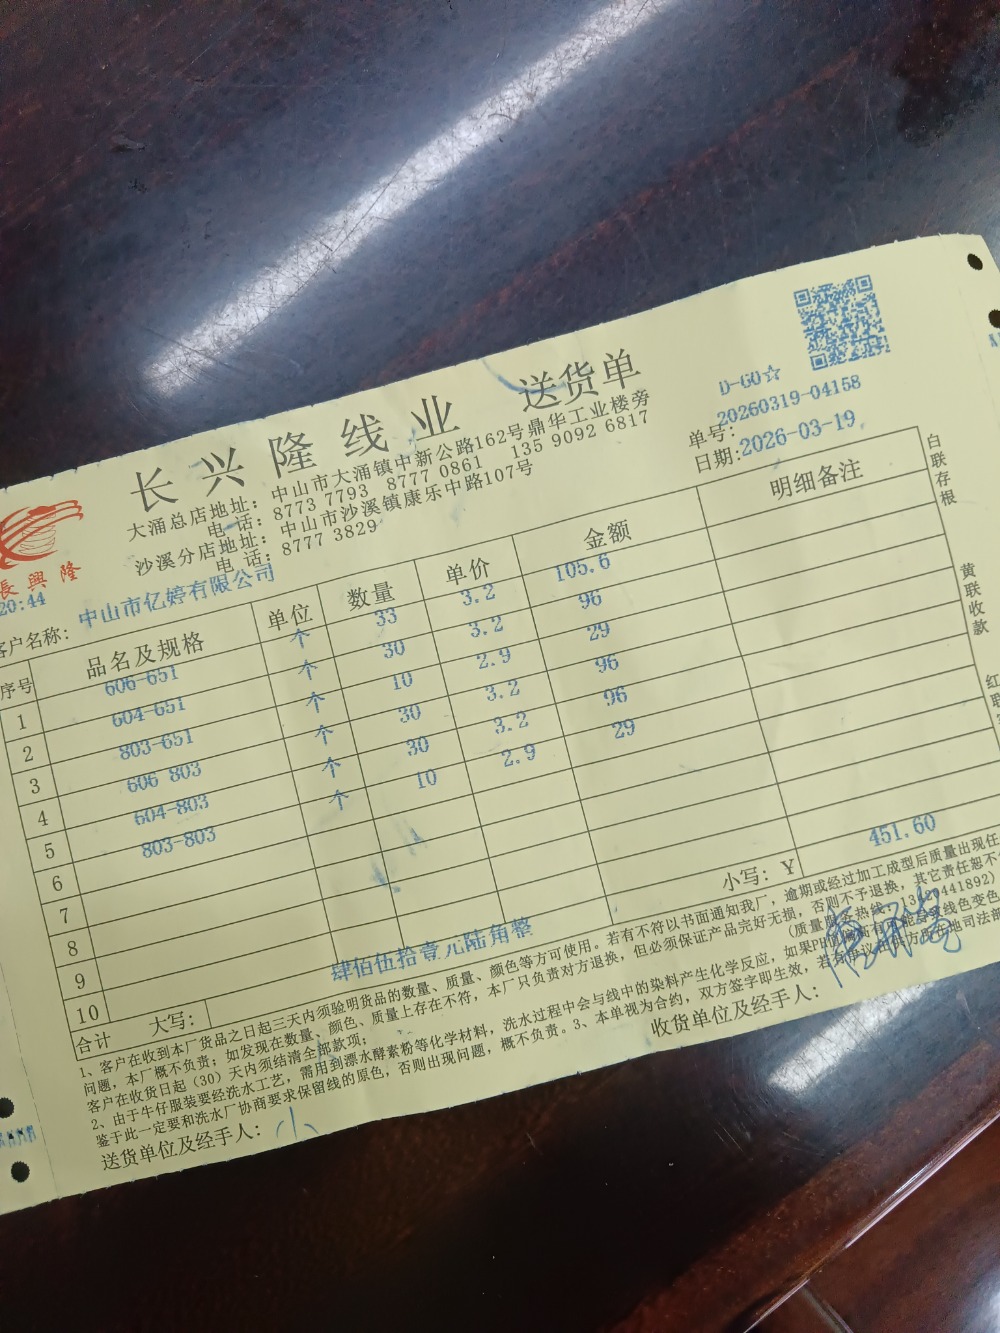 长兴隆线业 送货单
D-GO☆
大涌总店地址：中山市大涌镇中新公路162号鼎华工业楼旁
单号：20260319-04158
电话：8773 7793 8777 0861 135 9092 6817
日期：2026-03-19
沙溪分店地址：中山市沙溪镇康乐中路107号
电话：8777 3829
長興隆
20:44
客户名称：中山市亿婷有限公司
序号 品名及规格 单位 数量 单价 金额 明细备注
1 606-651 个 33 3.2 105.6
2 604-651 个 30 3.2 96
3 803-651 个 10 2.9 29
4 606 803 个 30 3.2 96
5 604-803 个 30 3.2 96
6 803-803 个 10 2.9 29
7
8
9
10
合计 大写：肆佰伍拾壹元陆角整 小写：¥ 451.60
1、客户在收到本厂货品之日起三天内须验明货品的数量、质量、颜色等方可使用。若有不符以书面通知我厂，逾期或经过加工成型后质量出现任
问题，本厂概不负责；如发现在数量、颜色、质量上存在不符，本厂只负责对方退换，但必须保证产品完好无损，否则不予退换，其它责任恕不
客户在收货日起（30）天内须结清全部款项；
2、由于牛仔服装要经洗水工艺，需用到漂水酵素粉等化学材料，洗水过程中会与线中的染料产生化学反应，如果PH值偏高有可能会导致线色变色
鉴于此一定要和洗水厂协商要求保留线的原色，否则出现问题，概不负责。3、本单视为合约，双方签字即生效，若有争议由供方所在地司法部
送货单位及经手人：小
收货单位及经手人：
白联存根
黄联收款
红联